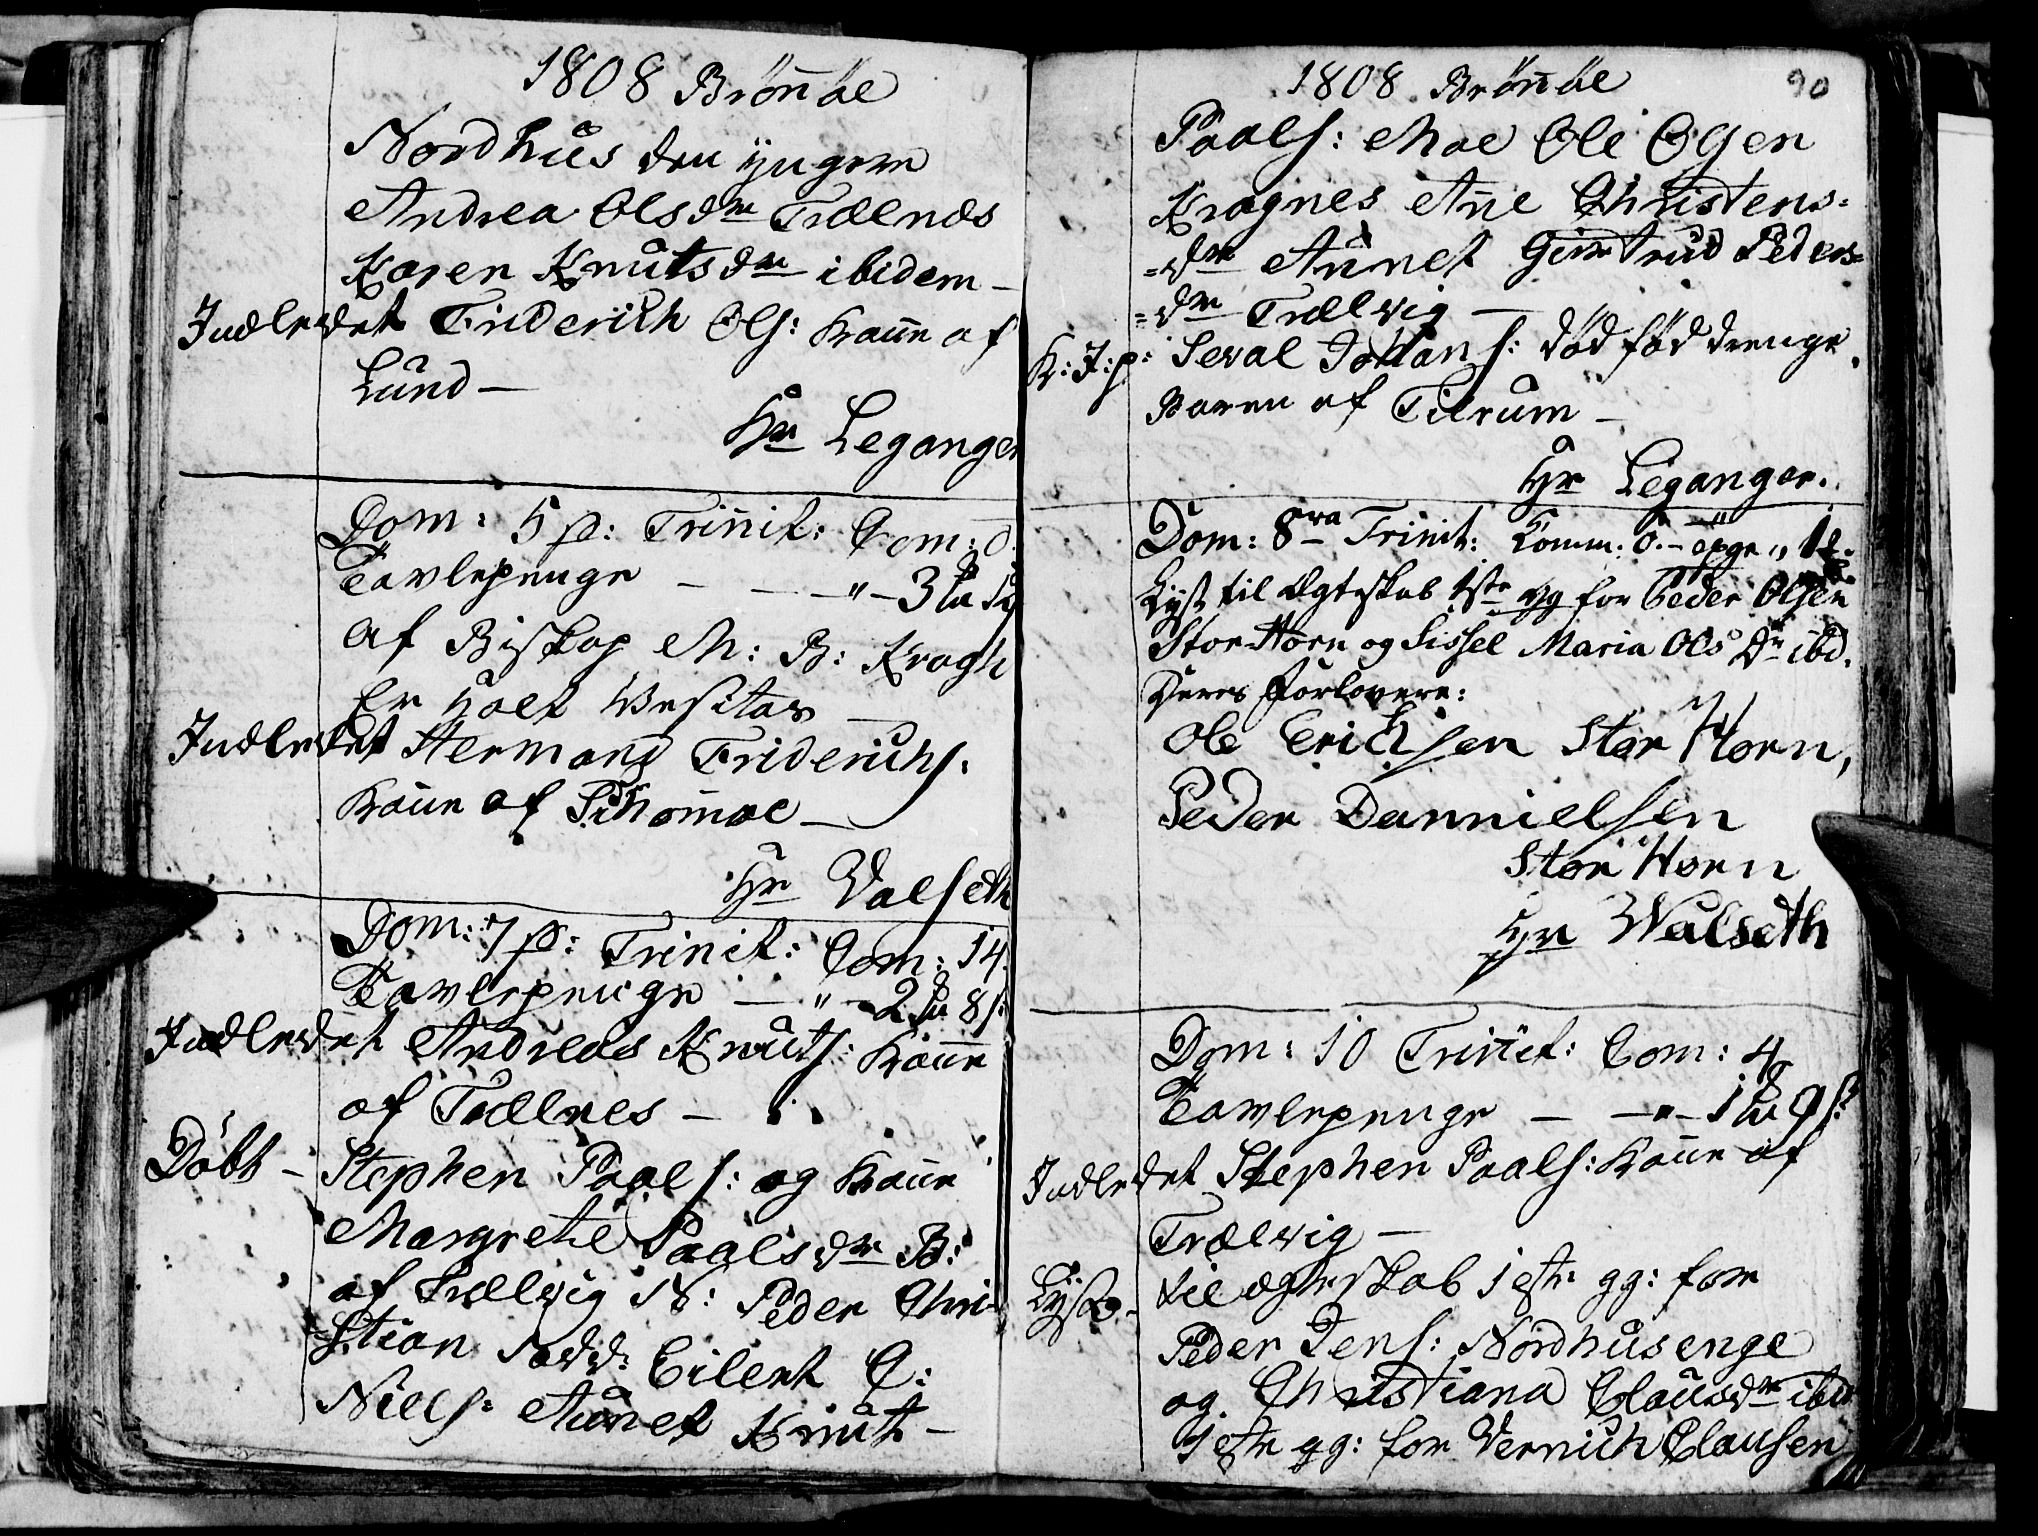 1808 Brönöe
Nordhus den yngere
Andrea Olsdr Trælnæs
Karen Knutsdr ibidem –
Indledet Friderich Ols: Kone af
Lund –
Hr Leganger
Dom: 5 p: Trinit: Com: 0.
Tavlepenge – – – " – 3
af Biskop M: B: Krogh
er holt Visitas –
Indledet Hermand Friderichs:
Kone af
Hr Valseth
Dom: 7 p: Trinit: Com: 14.
Tavlepenge – " – 2 8 s:
Indledet Andreas Knuts: Kone
af Trælnes –
Döbt – Stephen Paals: og Kone
Margrete Paalsdr B:
af Trælvig N: Peder Chri-
=stian Fadd: Eilert C:
Niels: Aunet Knut –
1808 Brönöe 90
Paals: Moe Ole Olsen
Kragnes Ane Christens=
=dr Aunet Giertrud Peders=
=dr Trælvig –
K: J: p: Seval Johans: död föd drenge
Baren af Tilrum –
Hr Leganger.
Dom: 8 Trinit: Komm: 0. –
Lyst til Ægteskab 1ste gg for Peder Olsen
Stor Horn og Sissel Maria Ols Dr ibd.
Deres Forlovere:
Ole Erichsen Stor Horn,
Peder Dannielsen
Stor Horn
Hr Walseth
Dom: 10 Trinit: Com: 4
Tavlepenge – – " – 1 9 s:
Indledet Stephen Paals: Kone af
Trælvig –
Lyst – til ægteskab 1ste gg: for
Peder Jens: Nordhusenge
og Christiana Clausdr ibid
1ste gg: for Vernich Clausen